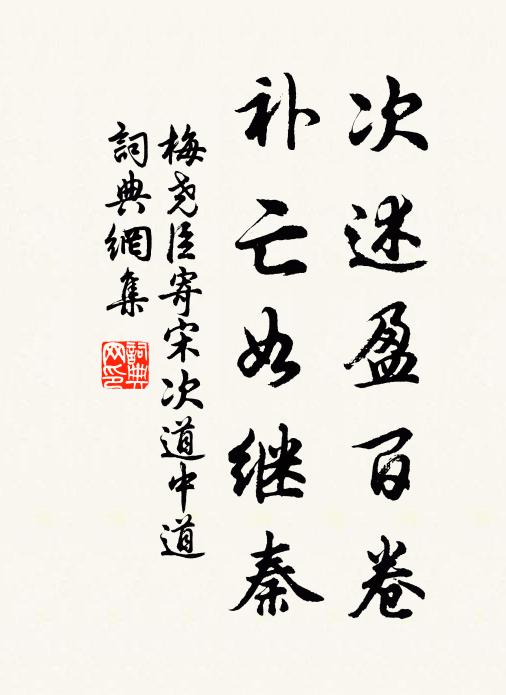 次述盈百卷
补亡如继秦
梅尧臣寄宋次道中道
詞典網集
詞典網印